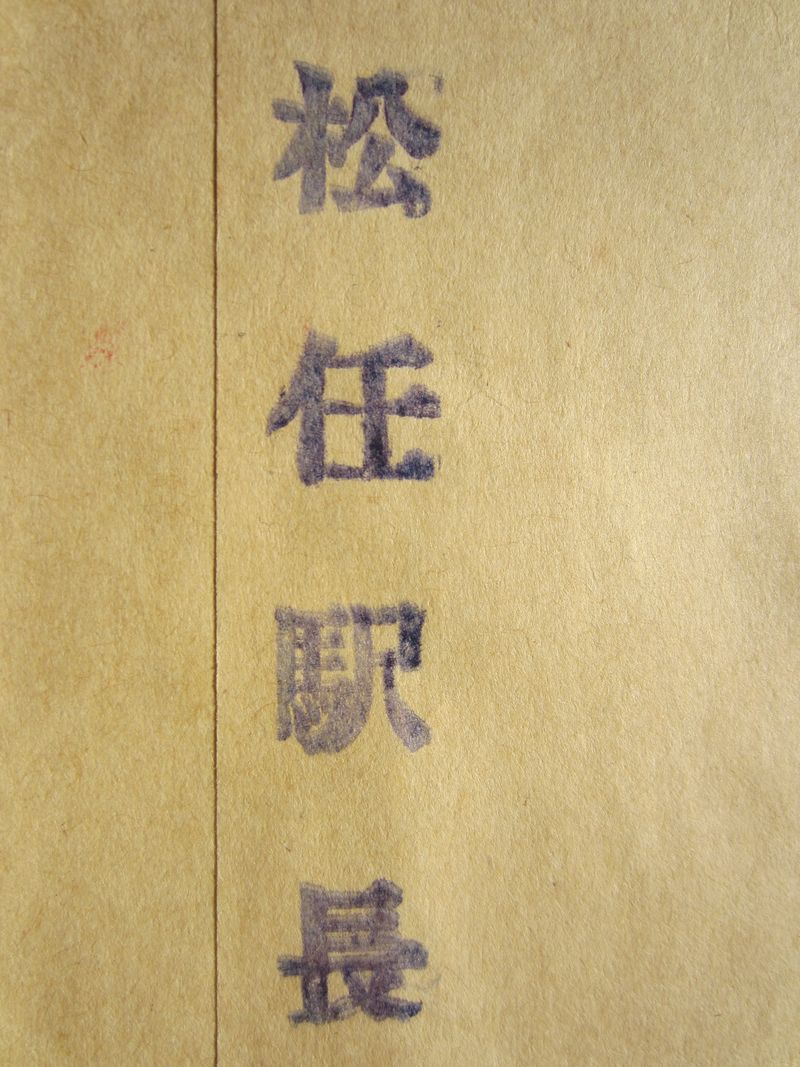 松任駅長